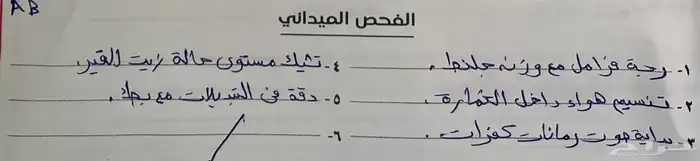 AB
الفحص الميداني
١- رجة فرامل مع وزنه جلنط.
٢- تنسيم هواء داخل الغمارة.
٣- بداية صوت رمانات كفرات.
٤- تشيك مستوى حالة زيت القير.
٥- دقة في التبديلات مع بطئ.
٦-